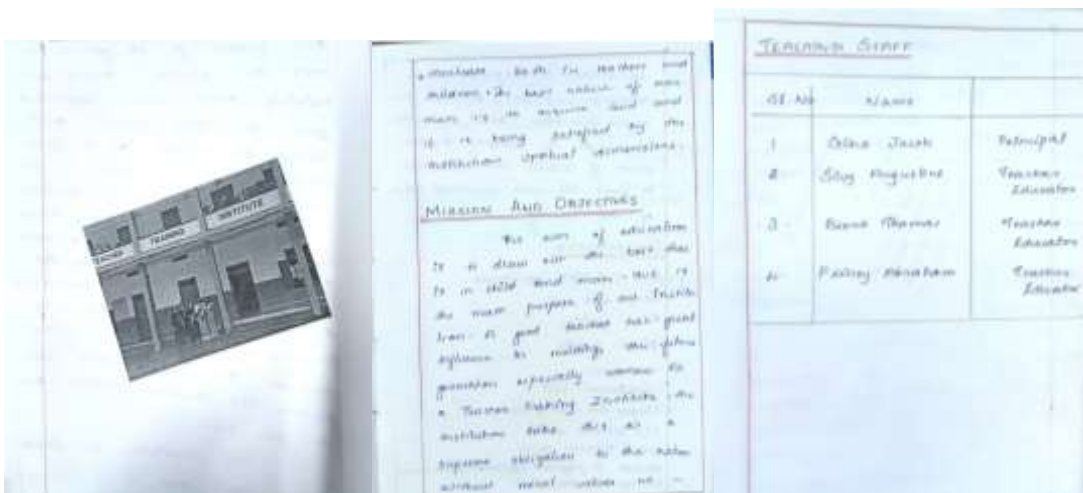 TEACHER TRAINING INSTITUTE
both in teachers and
children. The best nature of
man is to acquire and
it is being satisfied by the
institution
MISSION AND OBJECTIVES
The aim of education
is to draw out the best that
is in child and man. This is
the main purpose of our Institu
tion. A good teacher has great
influence in the future
generation especially women. As
a Teacher Training Institute the
institution take this as a
supreme obligation to the nation
without moral values no
TEACHING STAFF
Sl. No Name
1 Celine Jacob Principal
2 Augustine Teacher Educator
3 Thomas Teacher Educator
4 Abraham Teacher Educator